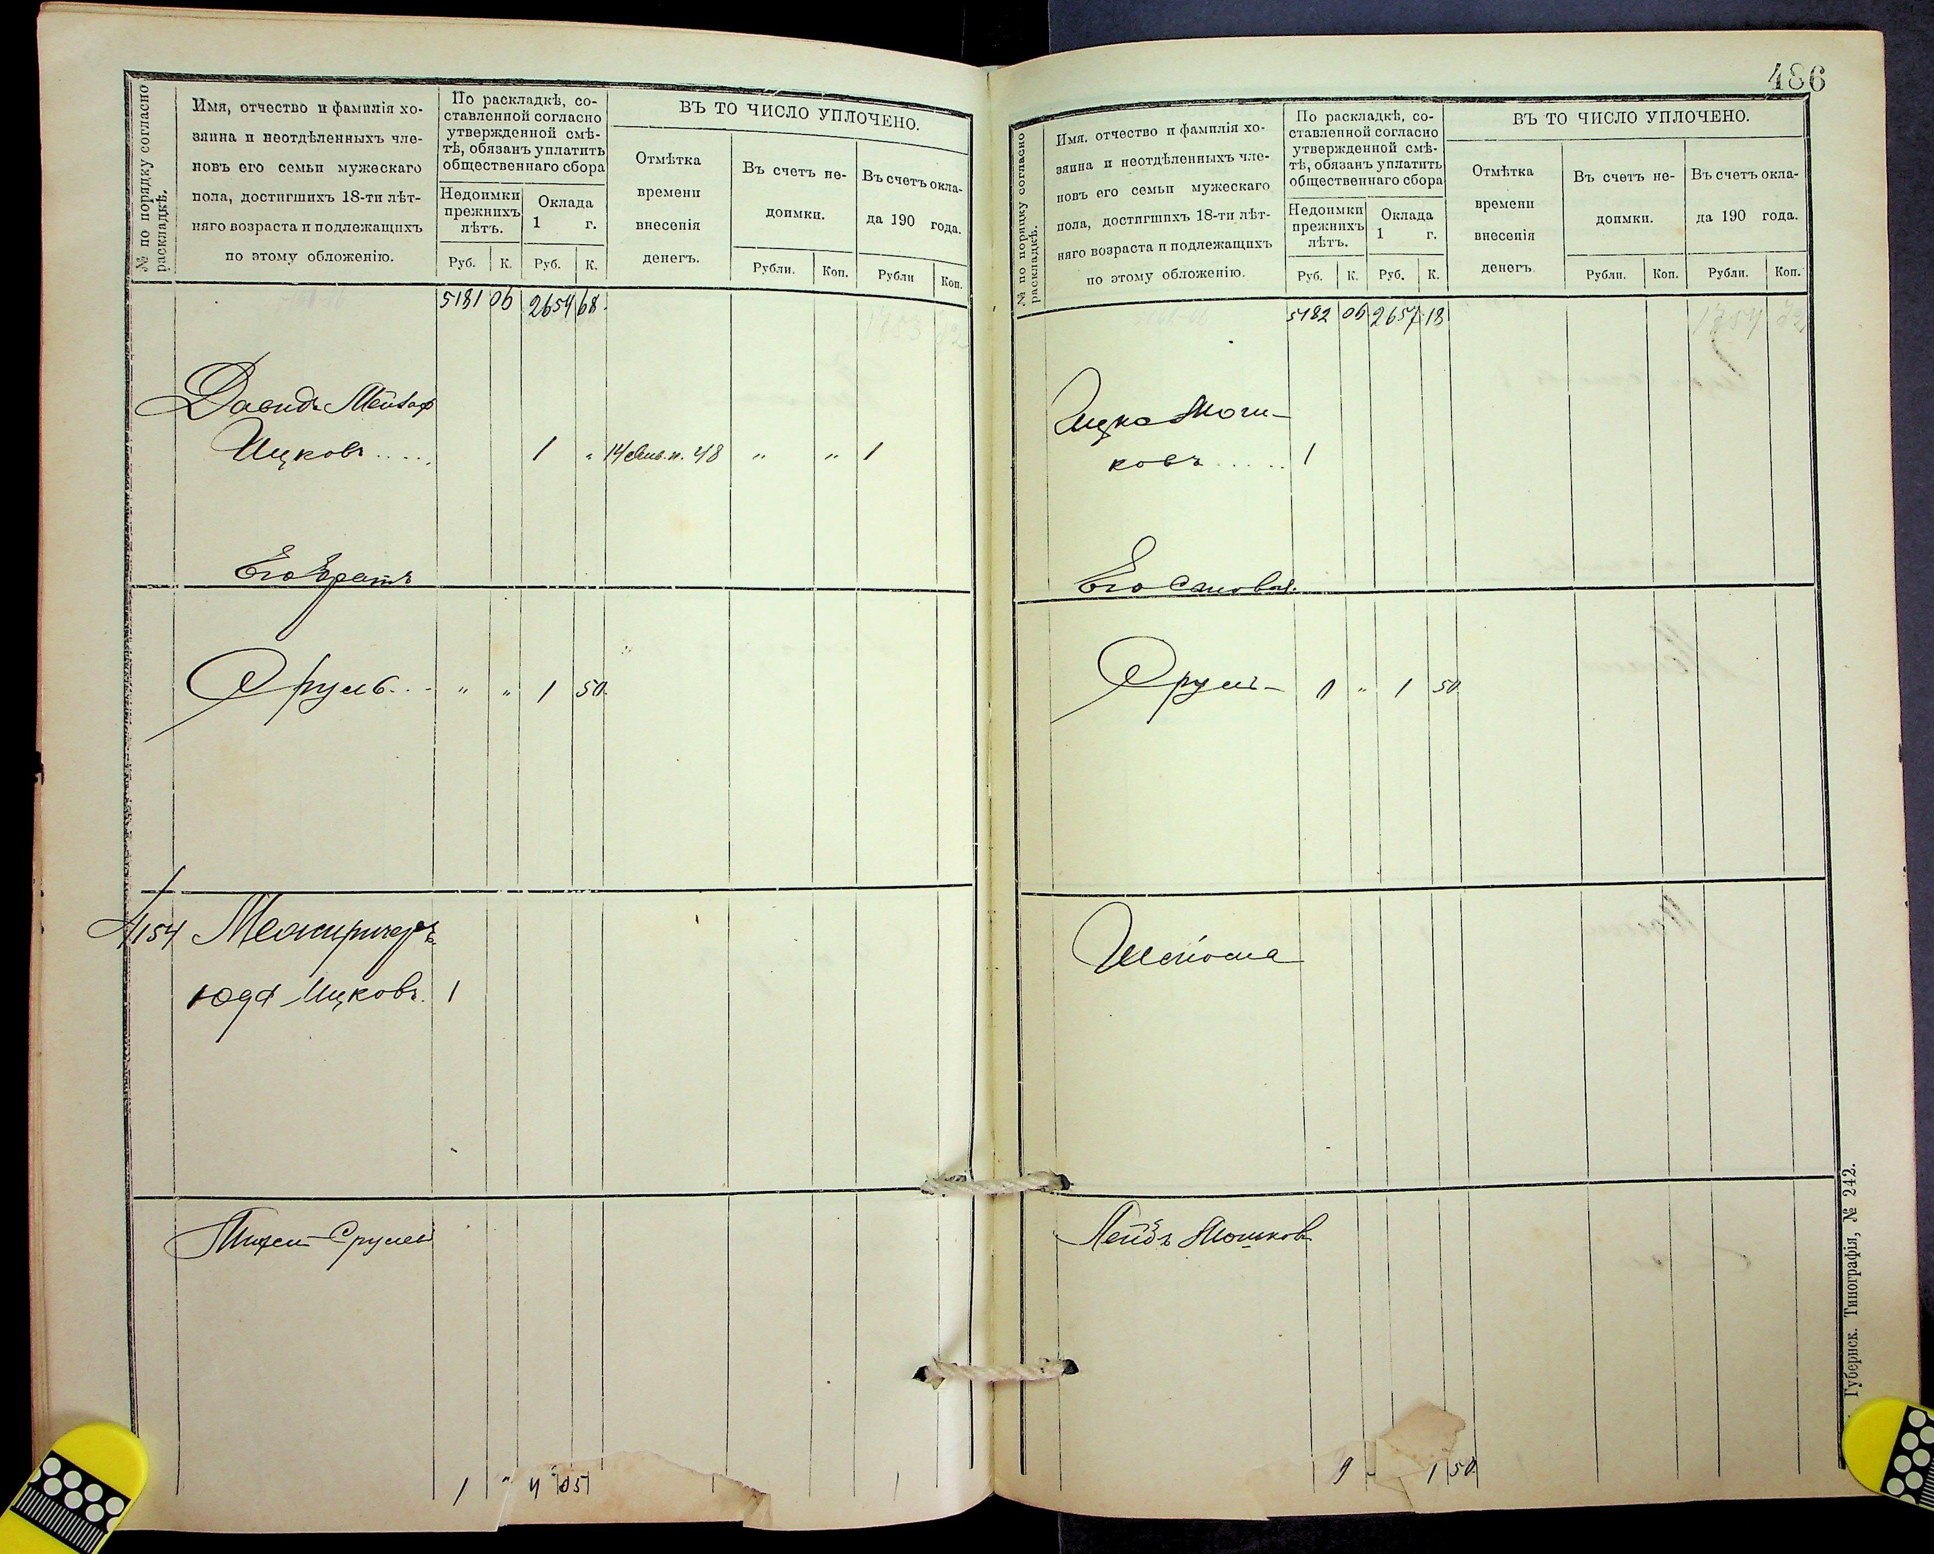 486
№ по порядку согласно
раскладкѣ.
Имя, отчество и фамилія хо-
зяина и неотдѣленныхъ чле-
новъ его семьи мужескаго
пола, достигшихъ 18-ти лѣт-
няго возраста и подлежащихъ
по этому обложенію.
По раскладкѣ, со-
ставленной согласно
утвержденной смѣ-
тѣ, обязанъ уплатить
общественнаго сбора
Недоимки
прежнихъ
лѣтъ.
Оклада
1 г.
Руб. К. Руб. К.
ВЪ ТО ЧИСЛО УПЛОЧЕНО.
Отмѣтка
времени
внесенія
денегъ.
Въ счетъ не-
доимки.
Рубли. Коп.
Въ счетъ окла-
да 190 года.
Рубли Коп.
5181 06 2654 68
Давидъ
Ицковъ..... 1 " 14 48 " " 1
Его братъ
Сруль... " " 1 50
4154
Юдя Ицковъ. 1
Срулевъ
1 "
1
№ по порядку согласно
раскладкѣ.
Имя, отчество и фамилія хо-
зяина и неотдѣленныхъ чле-
новъ его семьи мужескаго
пола, достигшихъ 18-ти лѣт-
няго возраста и подлежащихъ
по этому обложенію.
По раскладкѣ, со-
ставленной согласно
утвержденной смѣ-
тѣ, обязанъ уплатить
общественнаго сбора
Недоимки
прежнихъ
лѣтъ.
Оклада
1 г.
Руб. К. Руб. К.
ВЪ ТО ЧИСЛО УПЛОЧЕНО.
Отмѣтка
времени
внесенія
денегъ.
Въ счетъ не-
доимки.
Рубли. Коп.
Въ счетъ окла-
да 190 года.
Рубли. Коп.
5182 06 2657 18
Ицко Мош-
ковъ...... 1
Его сыновья
Сруль - " 1 50
Шлёма
Лейбъ Мошковъ
1 50
Губернск. Типографія, № 242.